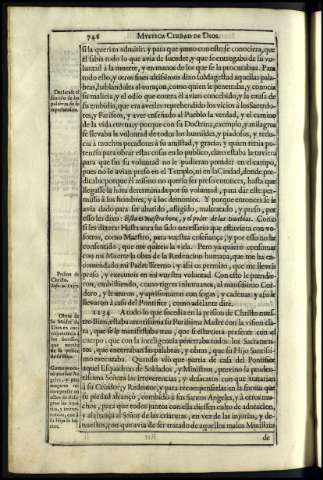 746 MYSTICA CIUDAD DE DIOS.
si la querian admitir: y para que junto con esto se conociera, que
él sabia todo lo que avia de suceder, y que se entregaba de su voluntad
à la muerte, y en manos de los que se la procuraban. Para
todo esto, y otros fines altissimos dixo su Magestad aquellas palabras,
hablandoles al coraçon, como quien le penetraba, y conocia
su malicia, y el odio que contra él avian concebido, y la causa de
su embidia, que era averles reprehendido los vicios à los Sacerdotes,
y Fariseos, y aver enseñado al Pueblo la verdad, y el camino
de la vida eterna; y porque con su Doctrina, exemplo, y milagros
se llevaba la voluntad de todos los humildes, y piadosos, y
à muchos pecadores à su amistad, y gracia; y quien tenia potencia
para obrar estas cosas en lo publico, claro estaba la tuviera
para que sin su voluntad no le pudieran prender en el campo,
pues no le avian preso en el Templo, ni en la Ciudad, donde predicaba:
porque él mismo no queria ser preso entonces, hasta que
llegasse la hora determinada por su voluntad, para dar este permisso
à los hombres, y à los demonios. Y porque entonces se le
avia dado para ser abatido, afligido, maltratado, y preso, por
esso les dixo: Esta es vuestra hora, y el poder de las tinieblas. Como
si les dixera: Hasta aora ha sido necessario que estuviera con vosotros,
como Maestro, para vuestra enseñança, y por esso no he
consentido, que me quiteis la vida. Pero ya quiero consumar
con mi Muerte la obra de la Redencion humana, que me ha encomendado
mi Padre Eterno: y assi os permito, que me lleveis
preso, y executeis en mi vuestra voluntad. Con esto le prendieron,
embistiendo, como tigres inhumanos, al mansissimo Cordero,
y le ataron, y aprisionaron con sogas, y cadenas; y assi le
llevaron à casa del Pontifice, como adelante diré.
1234 A todo lo que sucedia en la prision de Christo nuestro
Bien, estaba atentissima su Purissima Madre con la vision clara,
que se le manifestaba mas, que si estuviera presente con el
cuerpo; que con la inteligencia penetraba todos los Sacramentos,
que encerraban las palabras, y obras, que su Hijo Santissimo
executaba. Quando viò que partia de casa del Pontifice
aquel Esquadron de Soldados, y Ministros, previno la prudentissima
Señora las irreverencias, y desacatos con que tratarian
à su Criador, y Redentor; y para recompensarlas en la forma que
su piedad alcançò, combidò à sus Santos Angeles, y à otros muchos,
para que todos juntos con ella diessen culto de adoracion,
y alabança al Señor de las criaturas, en vez de las injurias, y denuestos,
con que avia de ser tratado de aquellos malos Ministros
de
Declarase el
sentido de las
palabras de su
reprehension.
Prision de
Christo.
Obras de
la Madre de
Dios en correspondencia